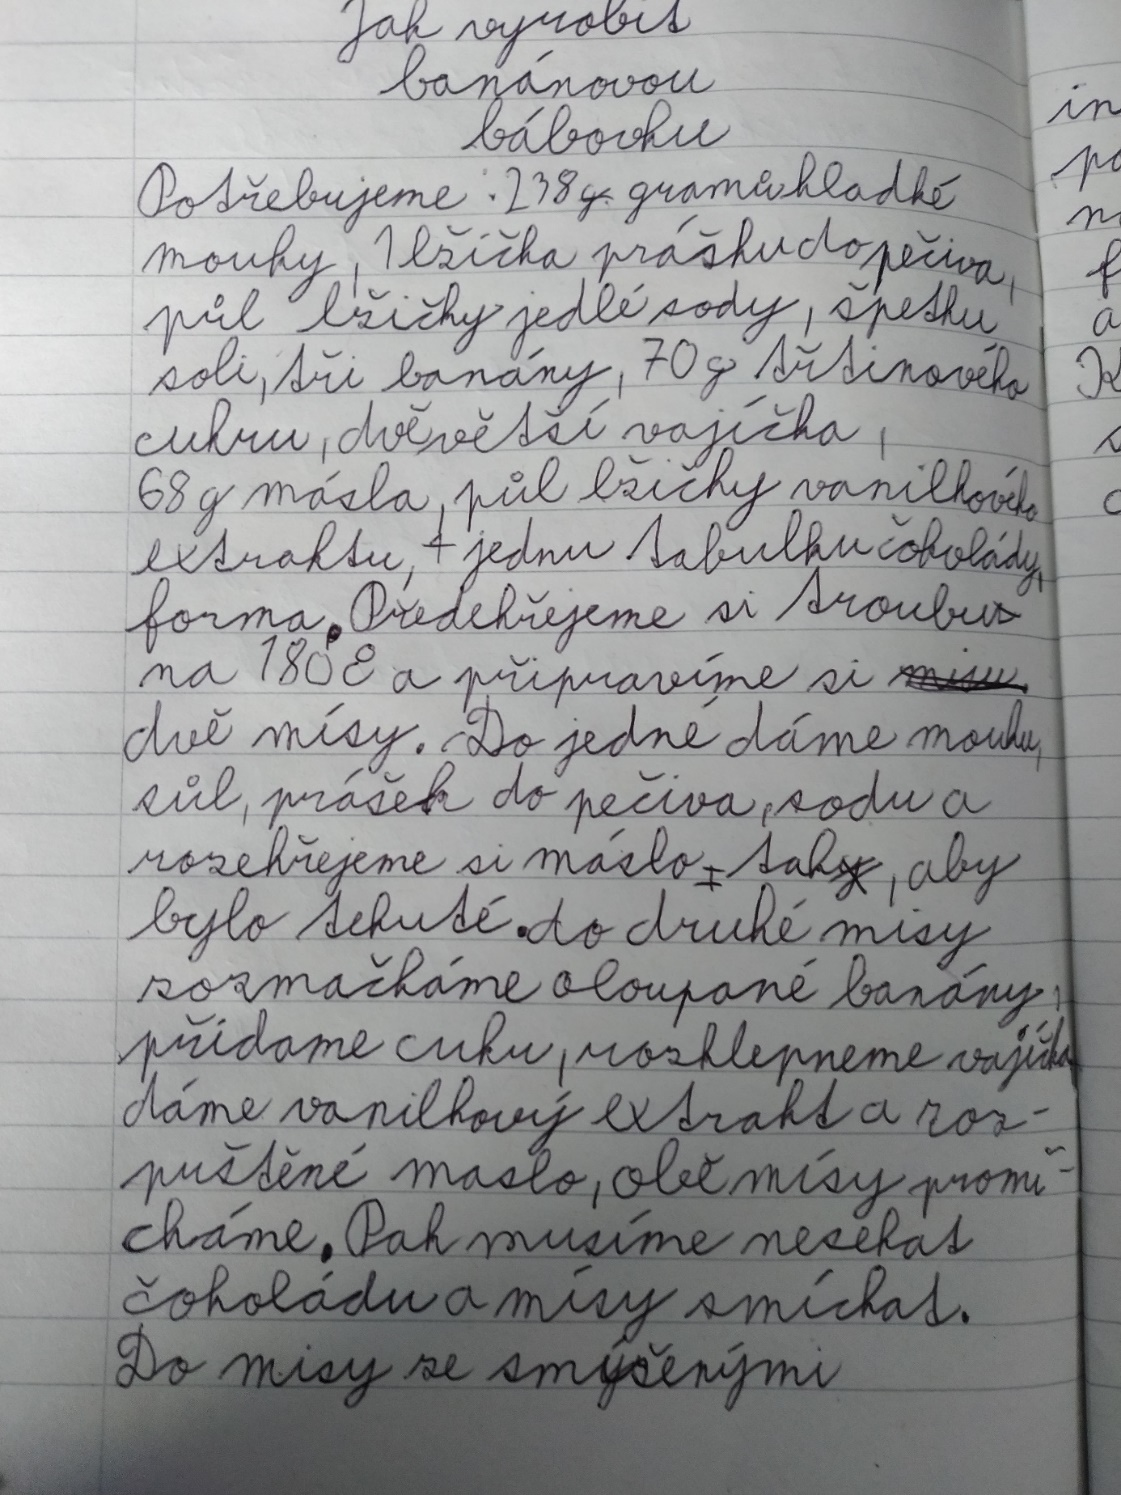 Jak vyrobit
banánovou
bábovku
Potřebujeme : 238g gramů hladké
mouky, 1 lžička prášku do pečiva,
půl lžičky jedlé sody, špetku
soli, tři banány, 70g třtinového
cukru, dvě větší vajíčka,
68g másla, půl lžičky vanilkového
extraktu, + jednu tabulku čokolády,
forma. Předehřejeme si troubu
na 180 a připravíme si
dvě mísy. Do jedné dáme mouku,
sůl, prášek do pečiva, sodu a
rozehřejeme si máslo tak, aby
bylo tekuté. do druhé misy
rozmačkáme oloupané banány,
přidame cukr, rozklepneme vajíčka
dáme vanilkový extrakt a roz-
puštěné maslo, obě mísy promí-
cháme. Pak musíme nesekat
čokoládu a mísy smíchat.
Do misy se smíšenými
in
po
no
f
a
K
s